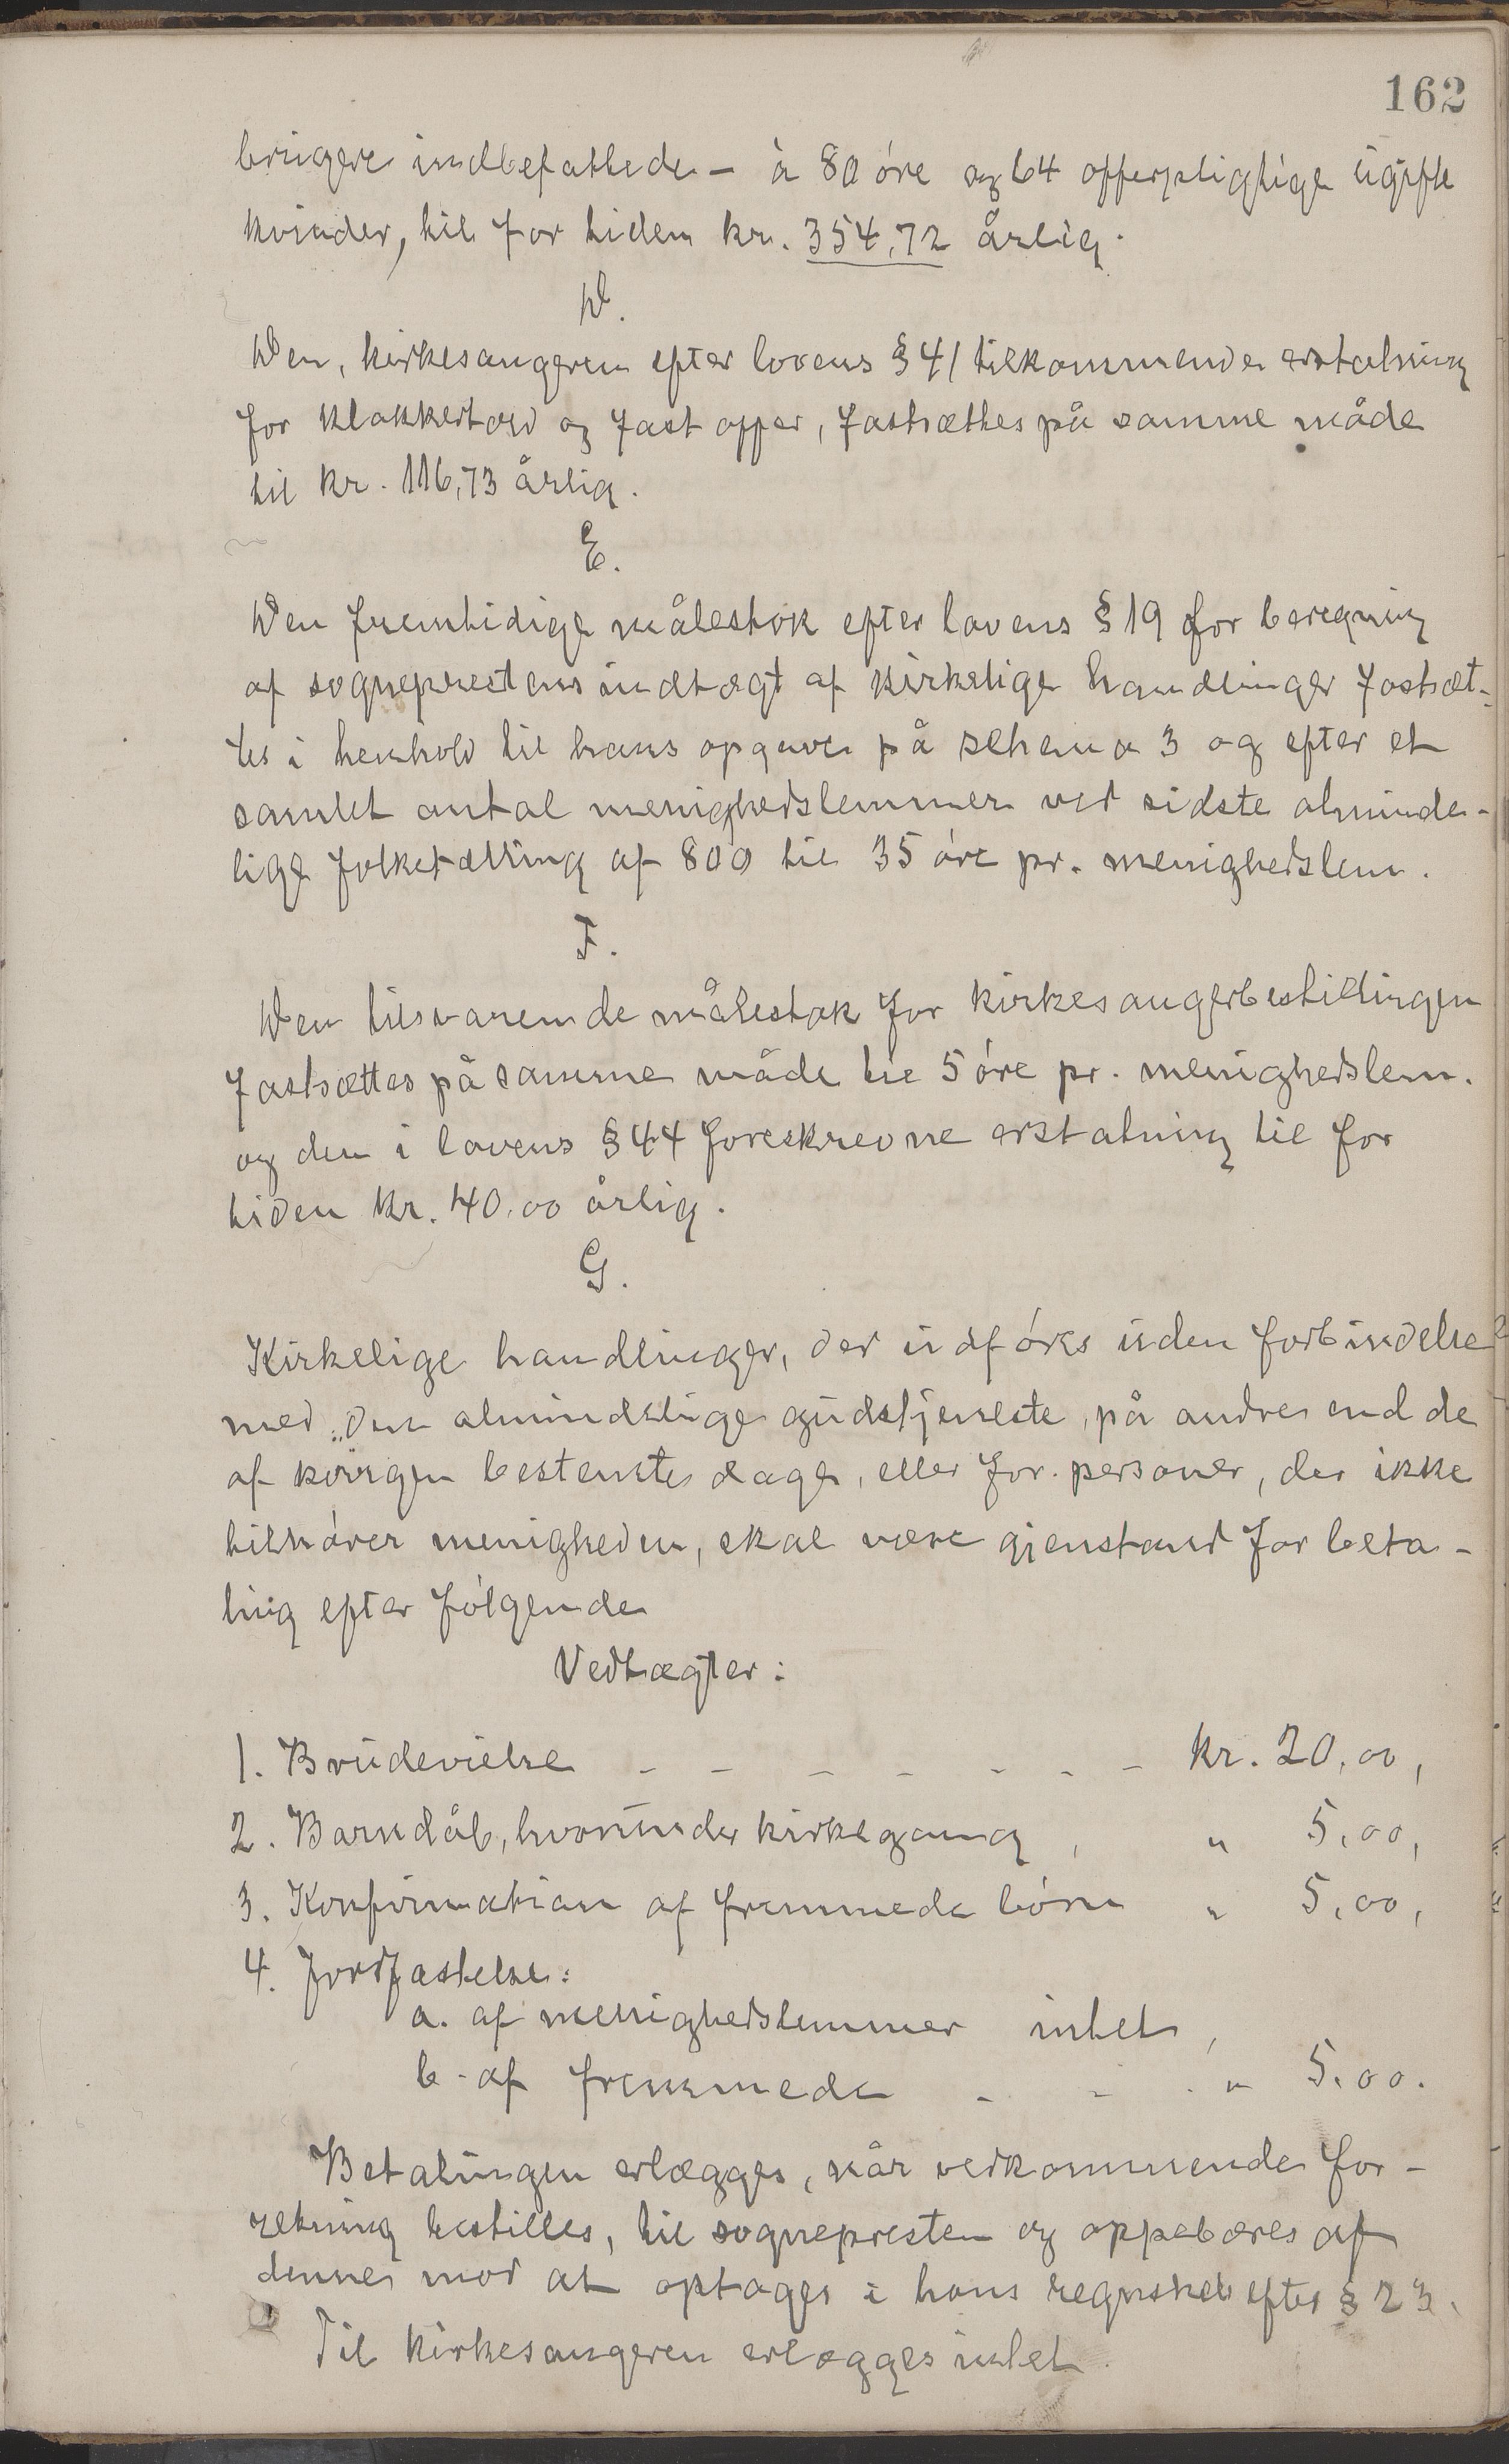 162
brugere indbefattede – à 80 öre og 64 offerpligtige ugifte
kvinder, til for tiden kr. 354,72 årlig.
D.
Den, kirkesangeren efter lovens § 41 tilkommende erstatning
for klokkertold og fast offer, fastsættes på samme måde
til kr. 116,73 årlig.
E.
Den fremtidige målestok efter lovens § 19 for beregning
af sogneprestens indtægt af kirkelige handlinger fastsæt-
tes i henhold til hans opgave på schema 3 og efter et
samlet antal menighedslemmer ved sidste alminde-
lige folketælling af 800 til 35 öre pr. menighedslem.
F.
Den tilsvarende målestok for kirkesangerbestillingen
fastsættes på samme måde til 5 öre pr. menighedslem.
og den i lovens § 44 foreskrevne erstatning til for
tiden kr. 40,00 årlig.
G.
Kirkelige handlinger, der udföres uden forbindelse
med den almindelige gudstjeneste, på andre end de
af kongen bestemte dage, eller for personer, der ikke
tilhörer menigheden, skal være gjenstand for beta-
ling efter fölgende
Vedtægter:
1. Brudevielse - - - - - - - kr. 20,00,
2. Barndåb, hvorunder kirkegang, " 5,00,
3. Konfirmation af fremmede börn " 5,00,
4. Jordfæstelse:
a. af menighedslemmer intet,
b. af fremmede - - - " 5,00.
Betalingen erlægges, når vedkommende for-
retning bestilles, til sognepresten og oppebæres af
denne mod at optages i hans regnskab efter § 23.
Til kirkesangeren erlægges intet.